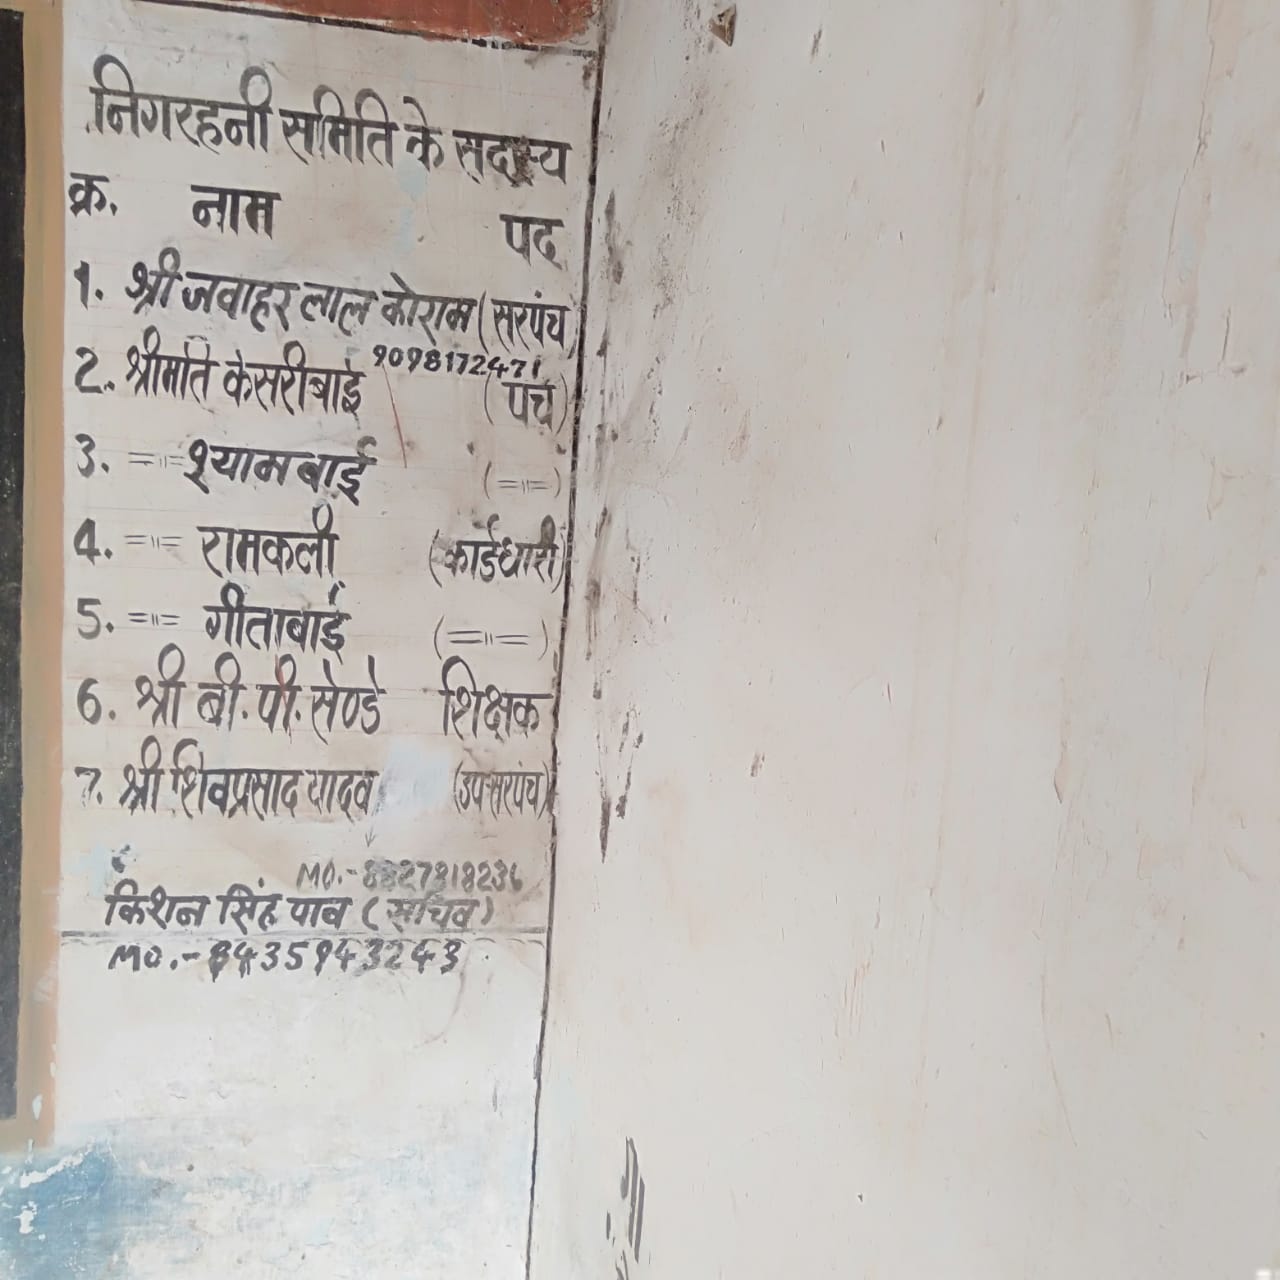 निगरहनी समिति के सदस्य
क्र. नाम पद
1. श्री जवाहर लाल कोराम (सरपंच)
9098172471
2. श्रीमति केसरीबाई (पंच)
3. =〃= श्यामबाई (=〃=)
4. =〃= रामकली (कार्डधारी)
5. =〃= गीताबाई (=〃=)
6. श्री बी. पी. सेण्डे शिक्षक
7. श्री शिवप्रसाद यादव (उपसरपंच)
MO.-
किशन सिंह पाव (सचिव)
MO.-